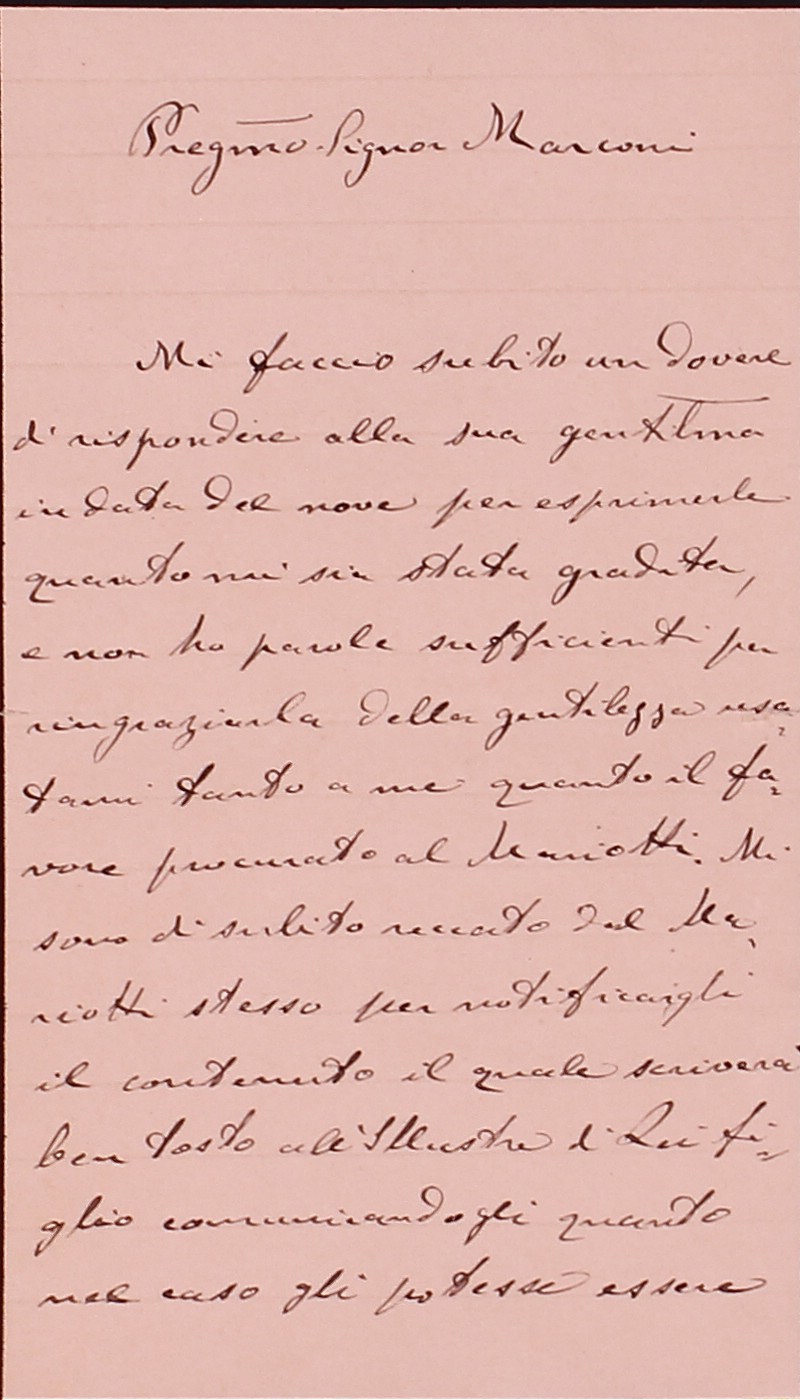 Pregmo. Signor Marconi
Mi faccio subito un dovere
di rispondere alla sua gentilma
in data del nove per esprimerle
quanto mi sia stata gradita,
e non ho parole sufficienti per
ringraziarla della gentilezza usa-
tami tanto a me quanto il fa-
vore procurato al Mariotti. Mi
sono di subito recato dal Ma-
riotti stesso per notificargli
il contenuto il quale scriverà
ben tosto all'Illustre di Lei fi-
glio comunicandogli quanto
nel caso gli potesse essere